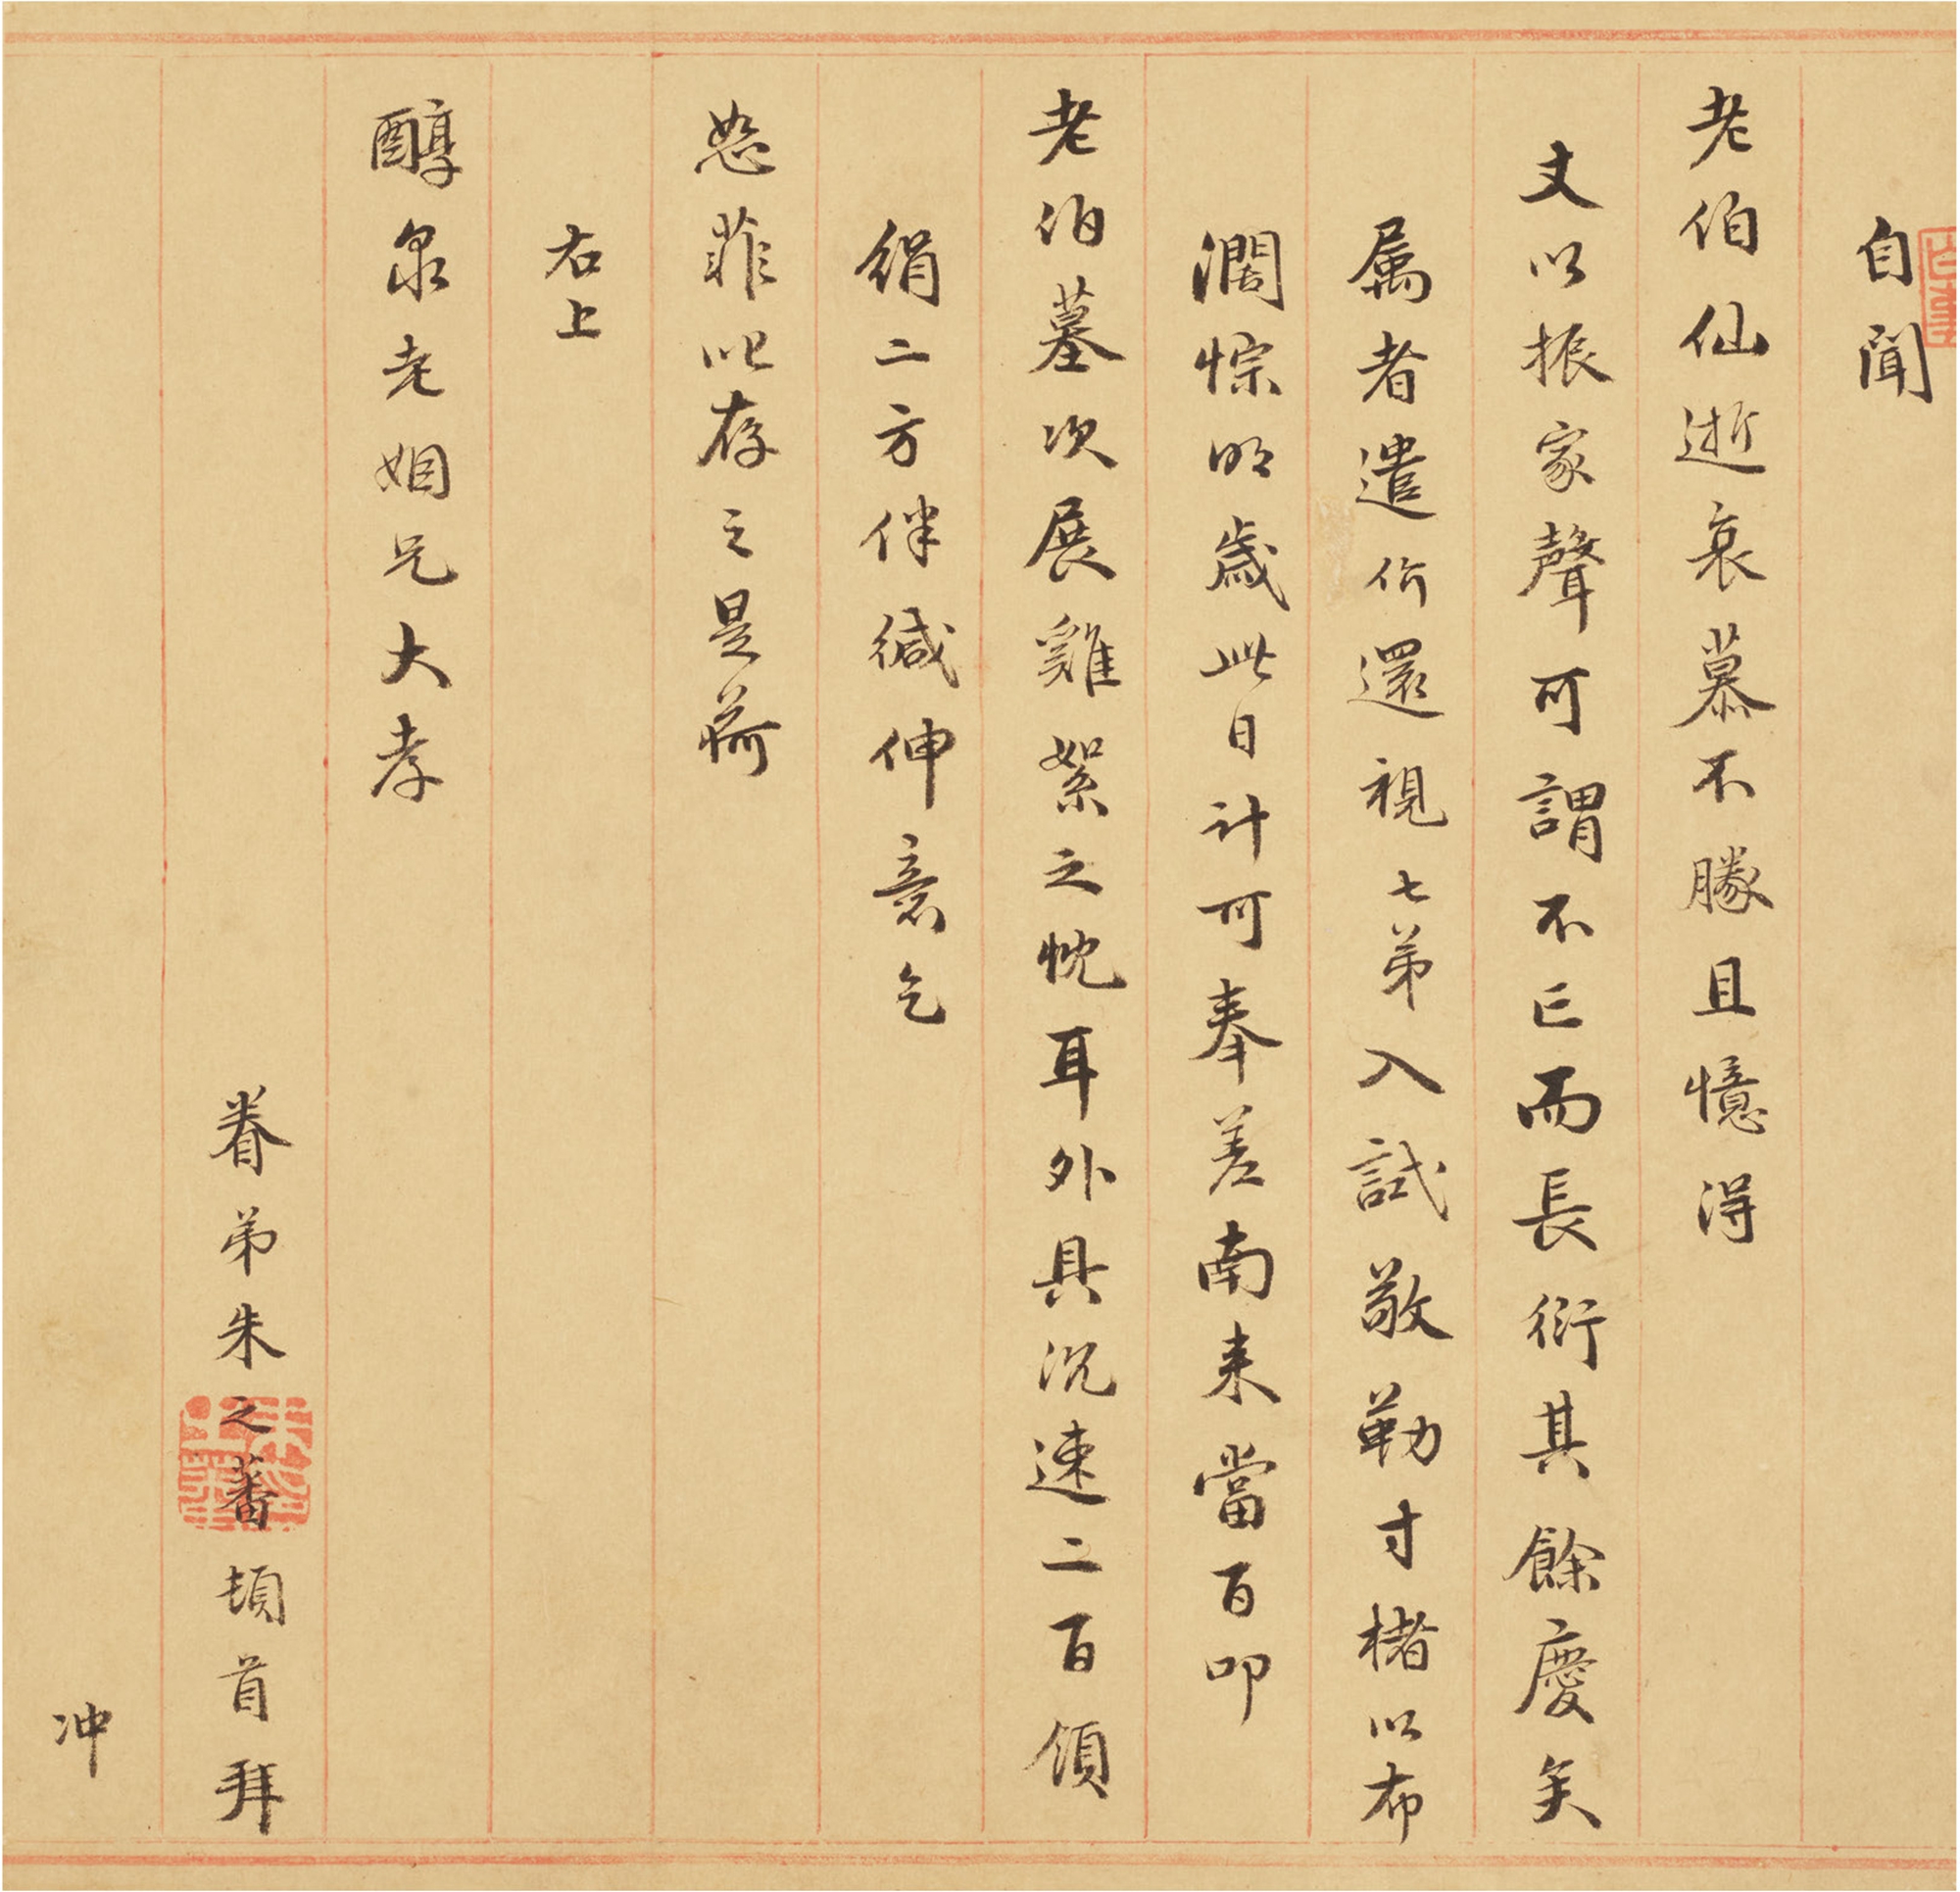 自聞
老伯仙逝哀慕不勝且憶得
丈以振家聲可謂不亡而長衍其餘慶矣
属者遣价還視七弟入試敬勒寸楮以布
濶悰明歲此日計可奉差南来當百叩
老伯墓次展雞絮之忱耳外具沉速二百領
絹二方伴緘伸意乞
恕菲以存之是荷
右上
醇泉老姻兄大孝
眷弟朱之蕃頓首拜
冲